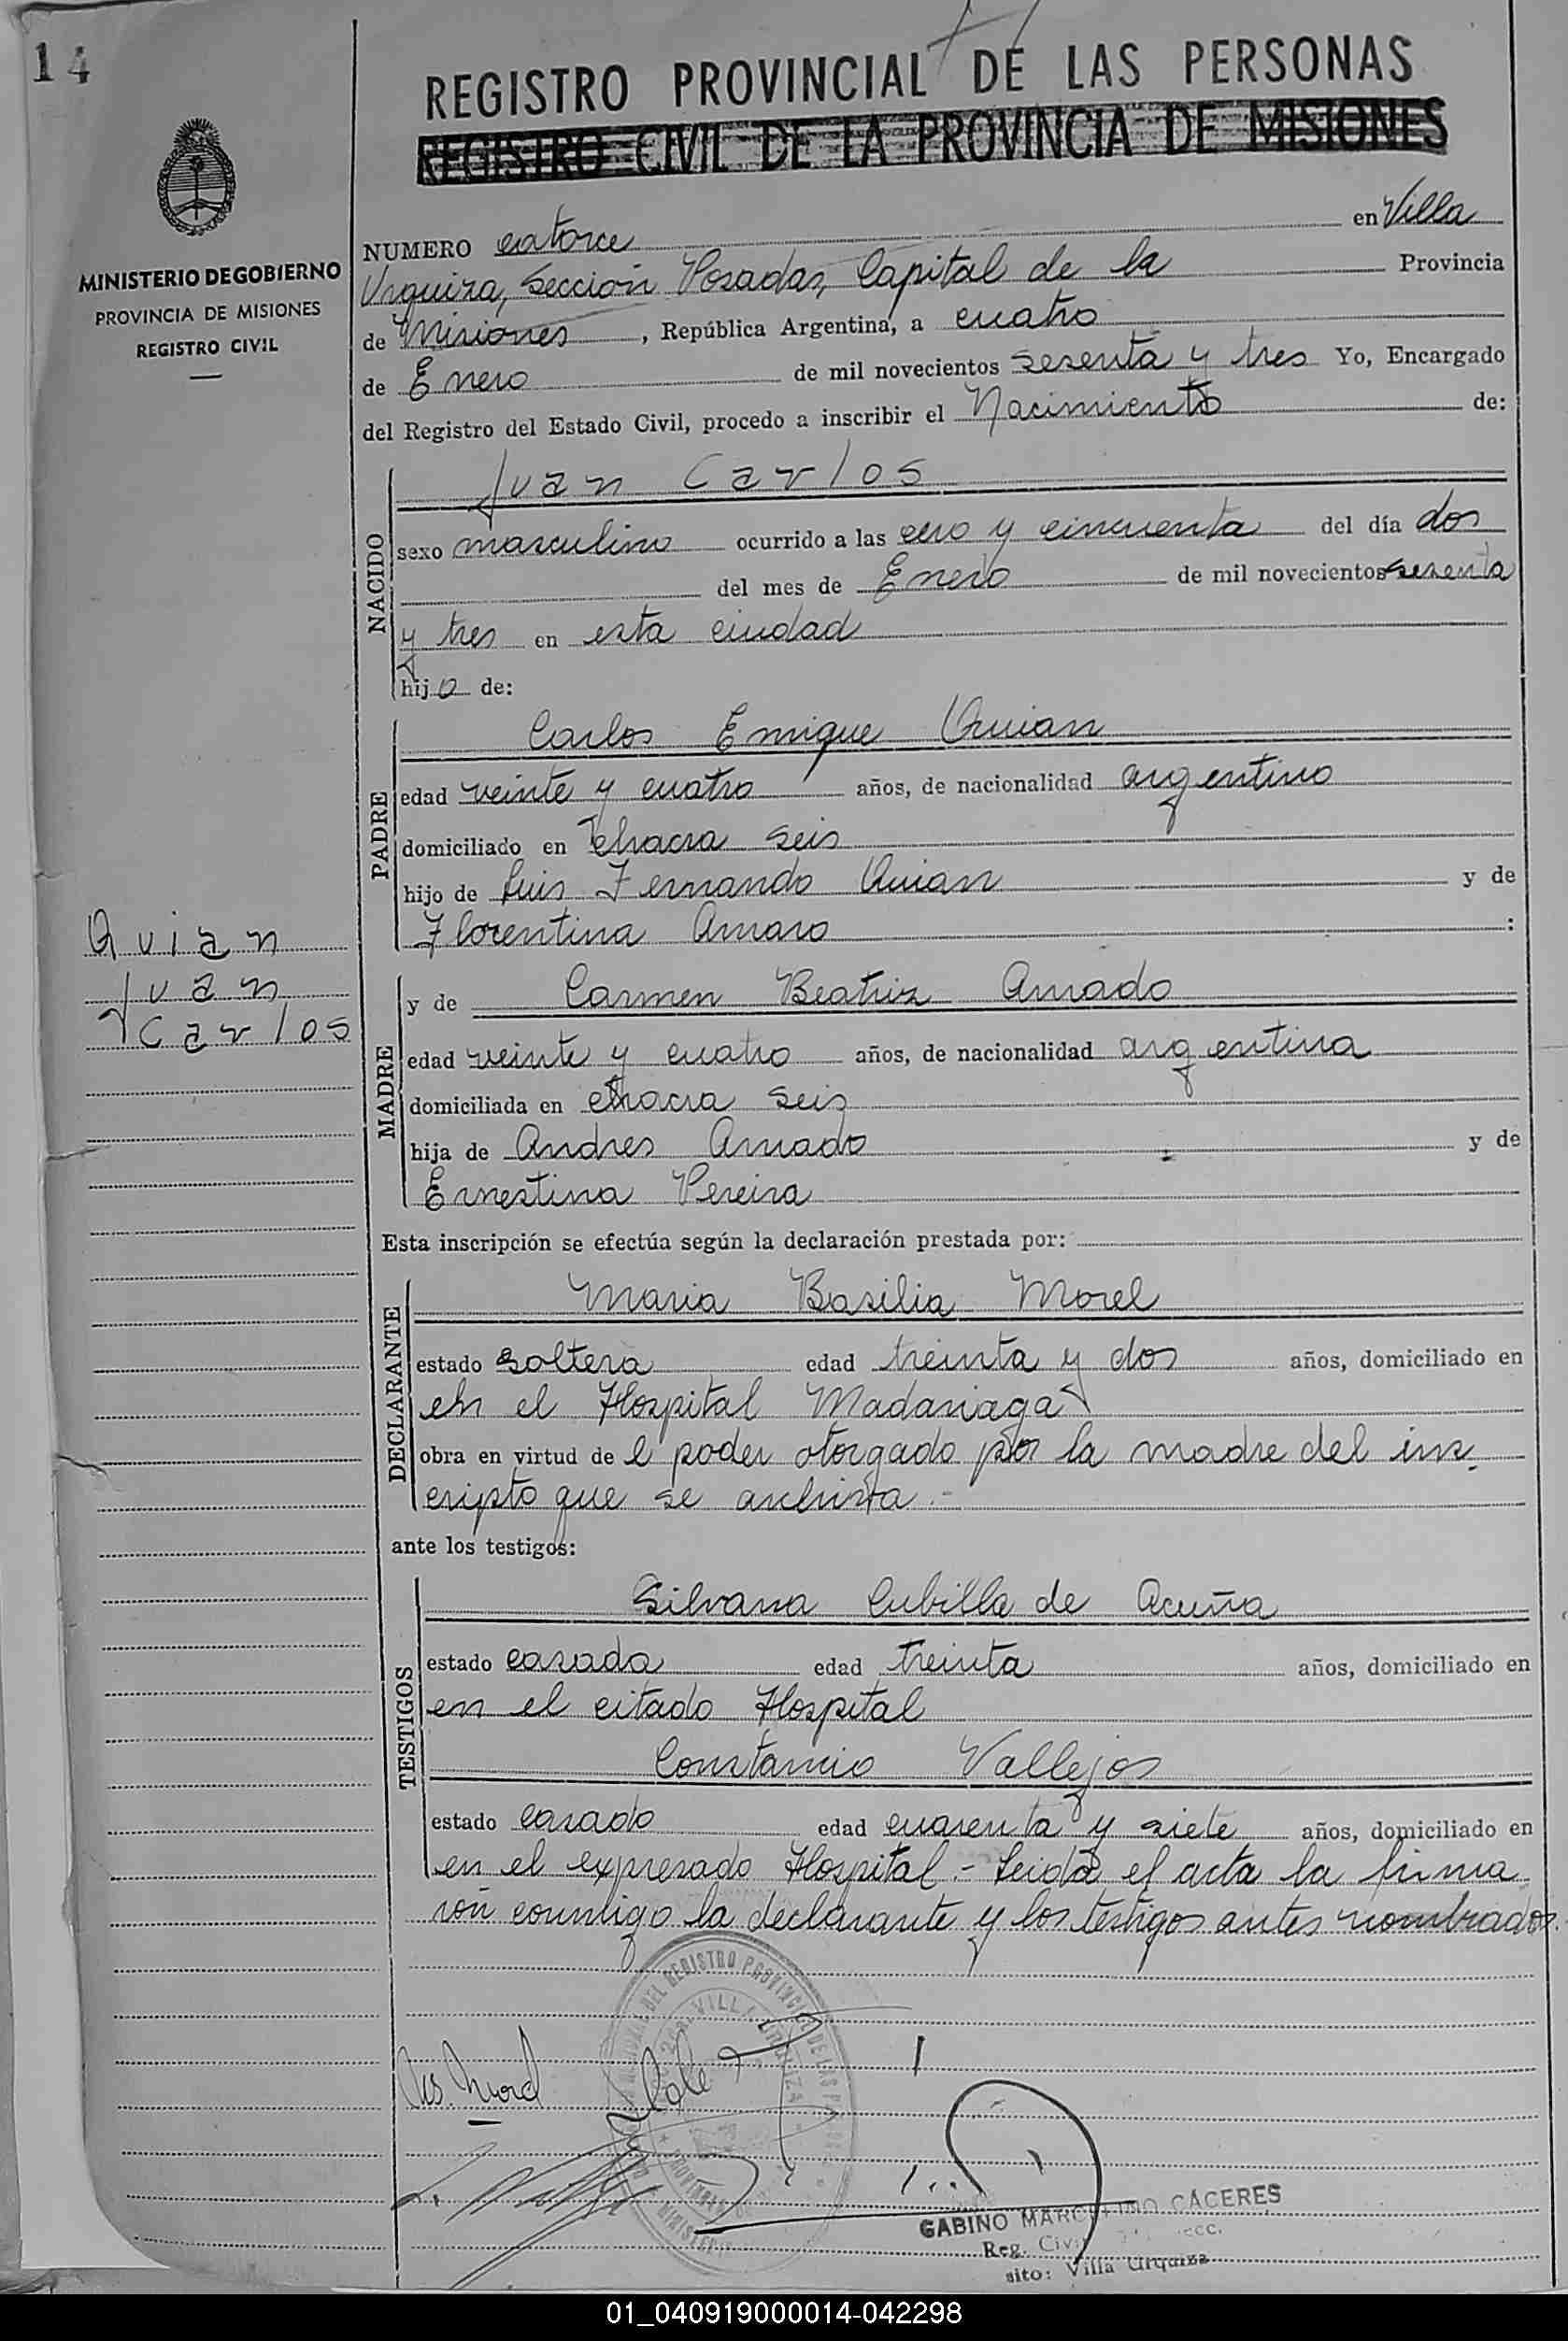 14
REGISTRO PROVINCIAL DE LAS PERSONAS
REGISTRO CIVIL DE LA PROVINCIA DE MISIONES
MINISTERIO DE GOBIERNO
PROVINCIA DE MISIONES
REGISTRO CIVIL
NUMERO catorce en Villa
Urquiza, Sección Posadas, Capital de la Provincia
de Misiones, República Argentina, a cuatro
de Enero de mil novecientos sesenta y tres Yo, Encargado
del Registro del Estado Civil, procedo a inscribir el Nacimiento de:
NACIDO
Juan Carlos
sexo masculino ocurrido a las cero y cincuenta del día dos
del mes de Enero de mil novecientos sesenta
y tres en esta ciudad
hijo de:
PADRE
Carlos Enrique Avian
edad veinte y cuatro años, de nacionalidad argentino
domiciliado en chacra seis
hijo de Luis Fernando Avian y de
Florentina Amaro :
Avian
Juan
Carlos
MADRE
y de Carmen Beatriz Amado
edad veinte y cuatro años, de nacionalidad argentina
domiciliada en chacra seis
hija de Andres Amado y de
Ernestina Pereira
Esta inscripción se efectúa según la declaración prestada por:
DECLARANTE
Maria Basilia Morel
estado soltera edad treinta y dos años, domiciliado en
en el Hospital Madariaga
obra en virtud de l poder otorgado por la madre del ins
cripto que se archiva.-
ante los testigos:
TESTIGOS
Silvana Cubilla de Acuña
estado casada edad treinta años, domiciliado en
en el citado Hospital
Constancio Vallejos
estado casado edad cuarenta y siete años, domiciliado en
en el expresado Hospital.- Leida el acta la firma
ron conmigo la declarante y los testigos antes nombrados.
GABINO MARCELINO CACERES
Reg. Civil
sito: Villa Urquiza
01_040919000014-042298